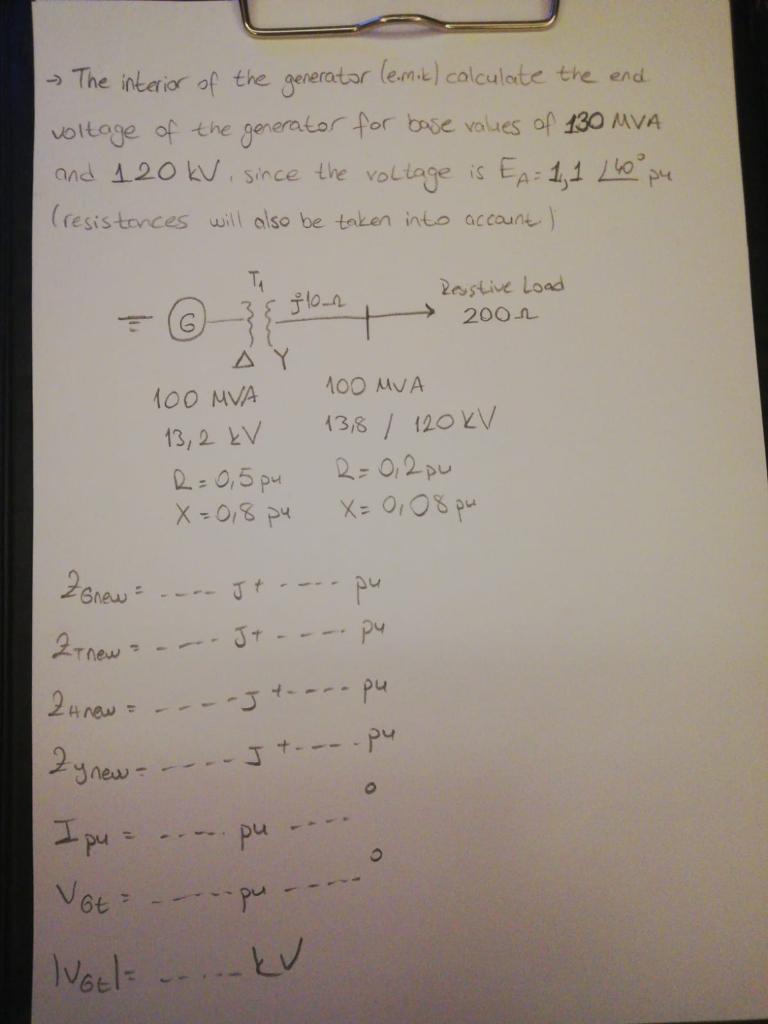 → The interior of the generator (e.m.k) calculate the end
voltage of the generator for base values of 130 MVA
and 120 kV, since the voltage is EA= 1,1 ∠40° pu
(resistances will also be taken into account.)
T1
j10Ω
Resistive Load
200Ω
G
Δ Y
100 MVA 100 MVA
13,2 kV 13,8 / 120 kV
R=0,5 pu R=0,2 pu
X=0,8 pu X=0,08 pu
ZGnew= ---- J+ ---- pu
ZTnew= ---- J+ ---- pu
ZHnew= ---- J+ ---- pu
Zynew= ---- J+ ---- pu
Ipu= ---- pu ---- °
VGt= ---- pu ---- °
|VGt|= ---- kV